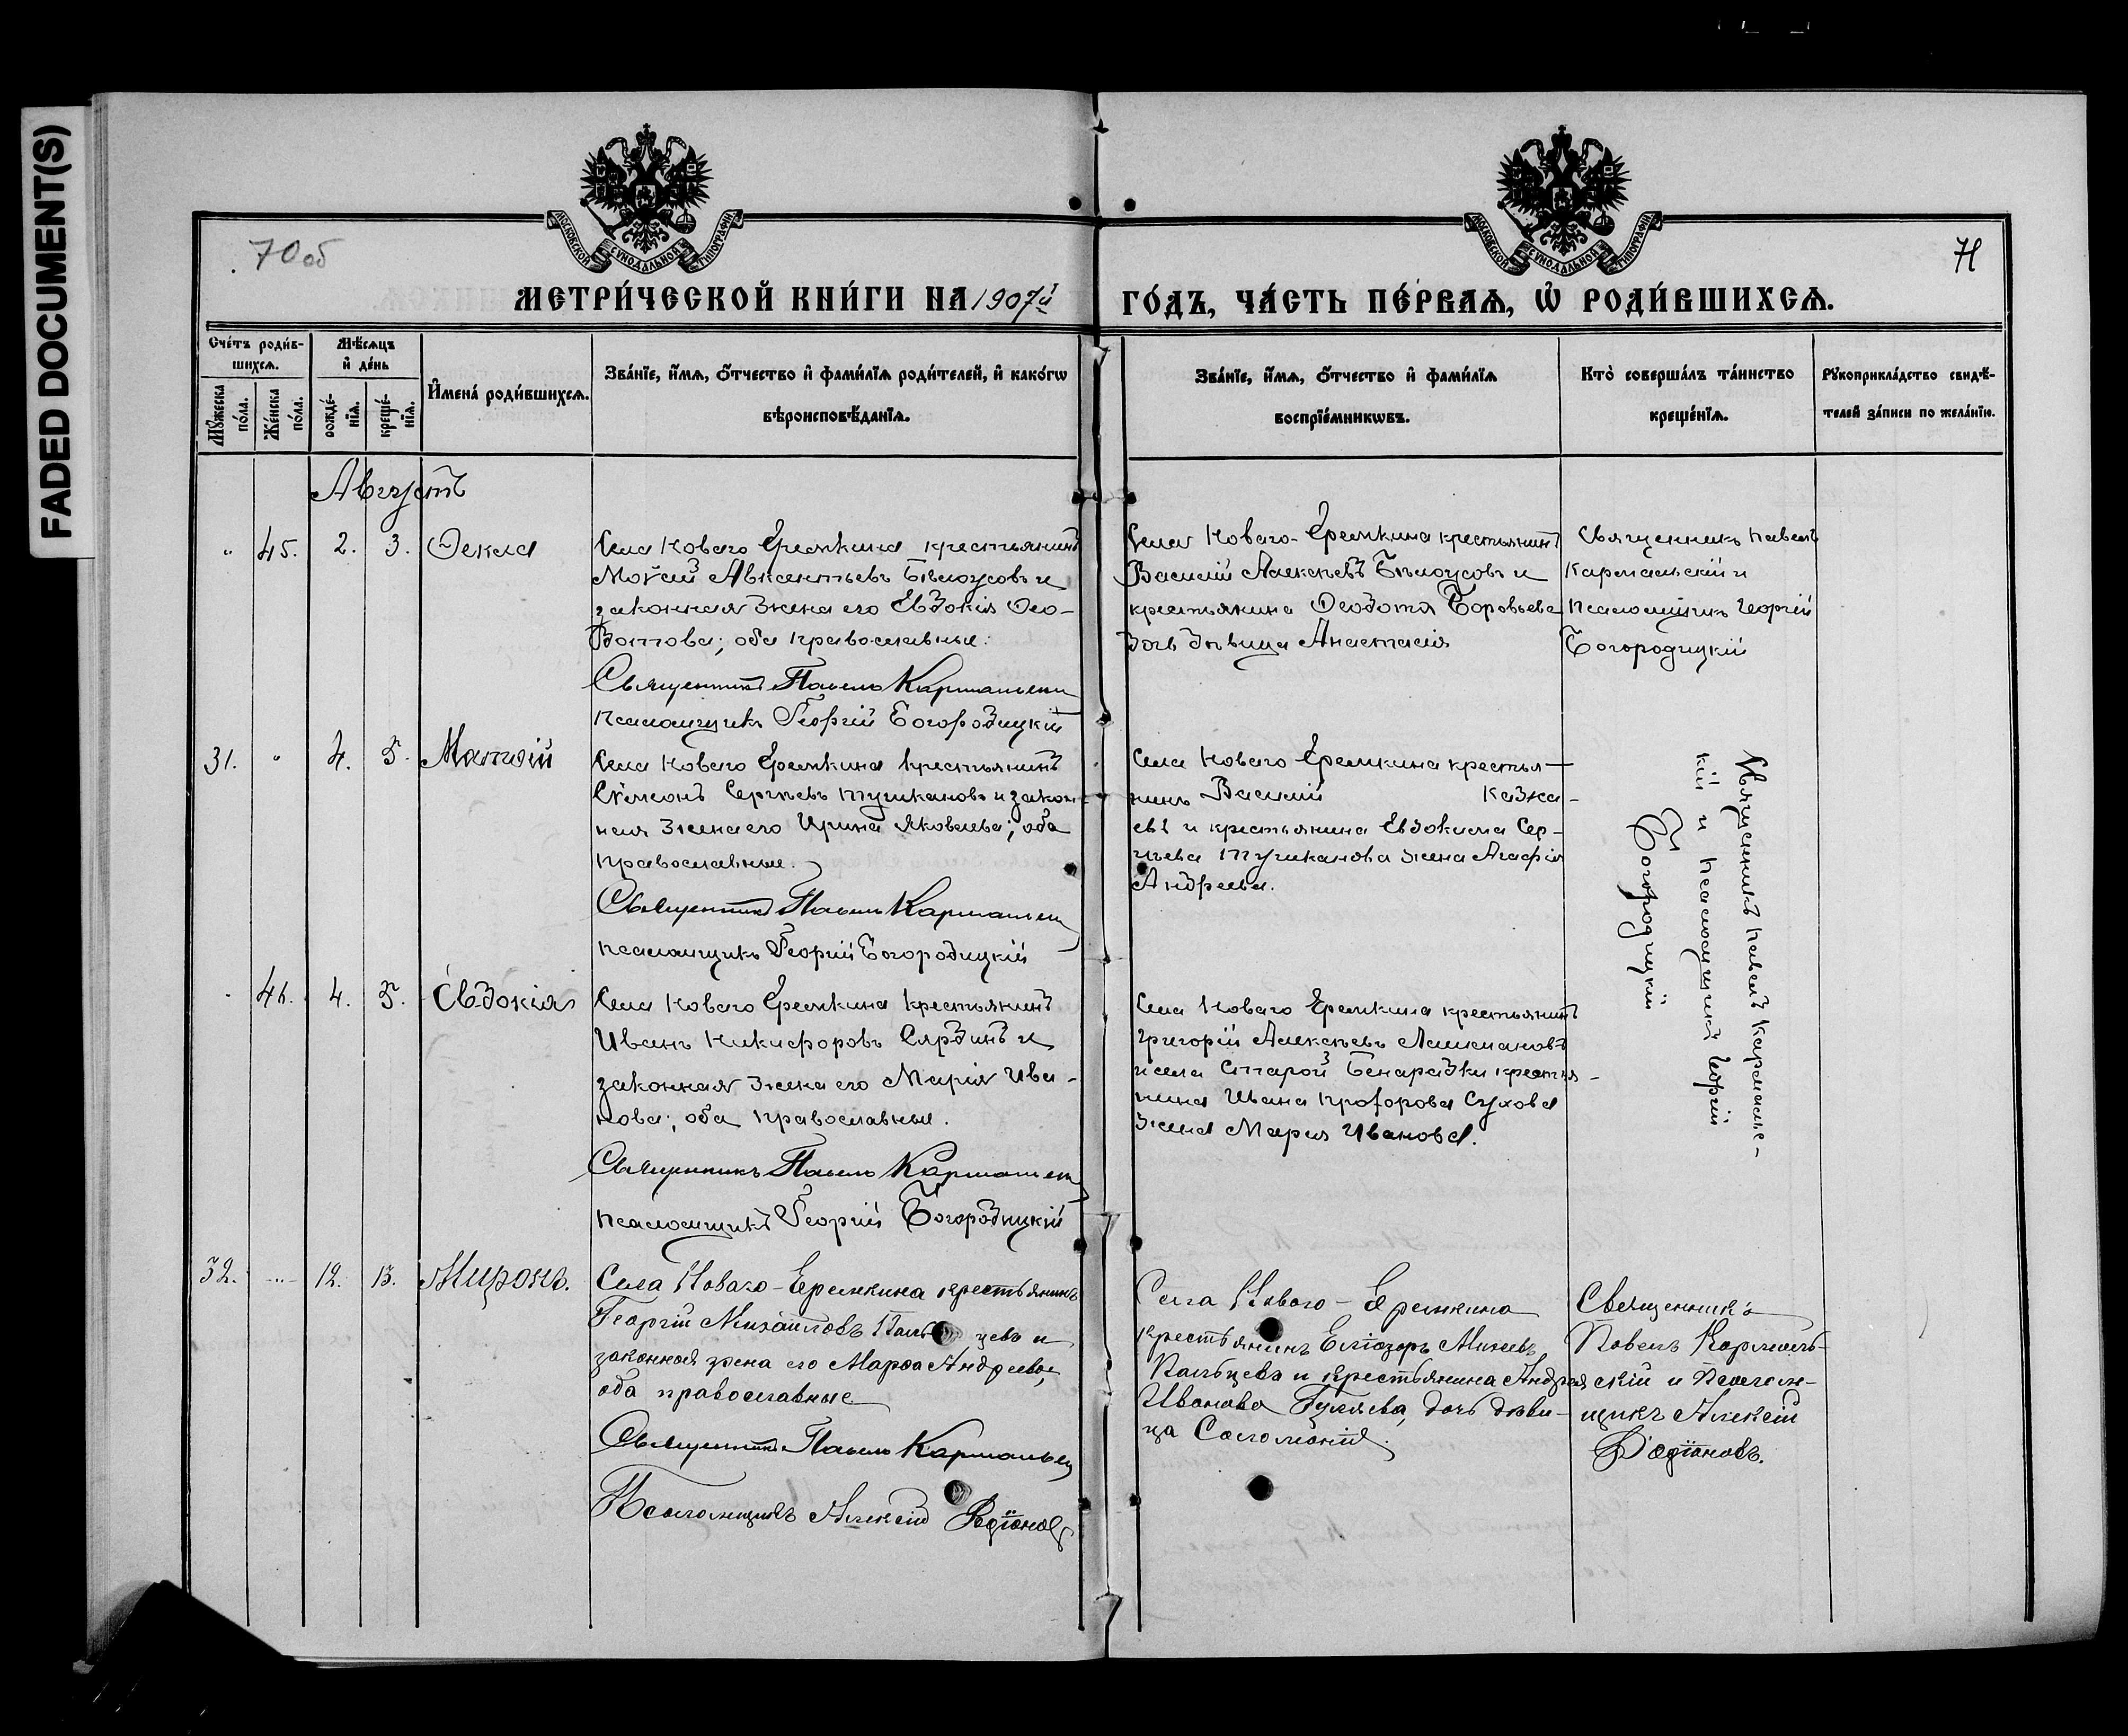 FADED DOCUMENT(S)
70 об
71
МОСКОВСКОЙ СѴНОДАЛЬНОЙ ТИПОГРАФІИ
МОСКОВСКОЙ СѴНОДАЛЬНОЙ ТИПОГРАФІИ
МЕТРИ́ЧЕСКОЙ КНИ́ГИ НА 1907й ГО́ДЪ, ЧА́СТЬ ПЕ́РВАѦ, Ѡ҆ РОДИ́ВШИХСѦ.
Сче́тъ роди́в-
шихсѧ.
Мꙋ́жеска
по́ла.
Же́нска
по́ла.
Мѣ́сѧцъ
и҆ де́нь
рожде́-
нїѧ.
креще́-
нїѧ.
И҆мена́ роди́вшихсѧ.
Зва́нїе, и҆́мѧ, ѻ҆́тчество и҆ фами́лїѧ роди́телей, и҆ како́гѡ
вѣроисповѣ́данїѧ.
Зва́нїе, и҆́мѧ, ѻ҆́тчество и҆ фами́лїѧ
воспрїе́мникѡвъ.
Кто̀ соверша́лъ та́инство
креще́нїѧ.
Рꙋкоприкла́дство свидѣ́-
телей за́писи по жела́нїю.
Августъ
" 45. 2. 3. Ѳекла
Села Новаго Еремкина крестьянинъ
Мокій Авксентьевъ Бѣлоусовъ и
законная жена его Евдокія Ѳео-
дотова; оба православные.
Священникъ Павелъ Кармальскій
Псаломщикъ Георгій Богородицкій
Села Новаго-Еремкина крестьянинъ
Василій Алексѣевъ Бѣлоусовъ и
крестьянина Ѳеодота Воробьева
дочь дѣвица Анастасія
Священникъ Павелъ
Кармальскій и
псаломщикъ Георгій
Богородицкій
31. " 4. 5. Матѳій
Села Новаго Еремкина крестьянинъ
Сѵмеонъ Сергѣевъ Тушкановъ и закон-
ная жена его Ирина Яковлева; оба
православные.
Священникъ Павелъ Кармальскій
псаломщикъ Георгій Богородицкій
Села Новаго Еремкина крестья-
нинъ Василій Казка-
евъ и крестьянина Евдокима Сер-
гѣева Тушканова жена Агафія
Андреева.
Священникъ Павелъ Кармальс-
кій и псаломщикъ Георгій
Богородицкій
" 46. 4. 5. Евдокія
Села Новаго Еремкина крестьянинъ
Иванъ Никифоровъ Сярдинъ и
законная жена его Марія Ива-
нова; оба православные.
Священникъ Павелъ Кармальскій
псаломщикъ Георгій Богородицкій
Села Новаго Еремкина крестьянинъ
Григорій Алексѣевъ
и села Старой Бинарадки крестья-
нина Ивана Прохорова Сухова
жена Марія Иванова.
32. " 12. 13. Миронъ.
Села Новаго-Еремкина крестьянинъ
Георгій Михаиловъ Пальцевъ и
законная жена его Марѳа Андреева,
оба православные
Священникъ Павелъ Кармальскій
Псаломщикъ Алексій Родіоновъ
Села Новаго-Еремкина
крестьянинъ Еліазаръ Михеевъ
Пальцевъ и крестьянина Андрея
Иванова Гуляева, дочь дѣви-
ца Саломонія.
Священникъ
Павелъ Кармаль-
скій и Псалом-
щикъ Алексій
Родіоновъ.